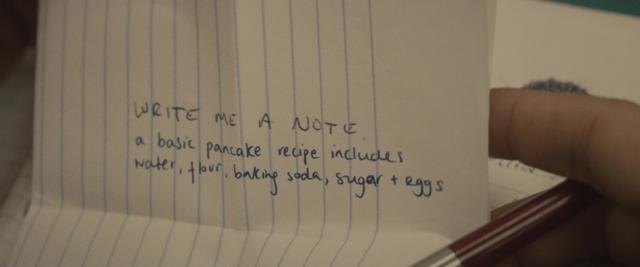 WRITE ME A NOTE.
a basic pancake recipe includes
water, flour, baking soda, sugar + eggs